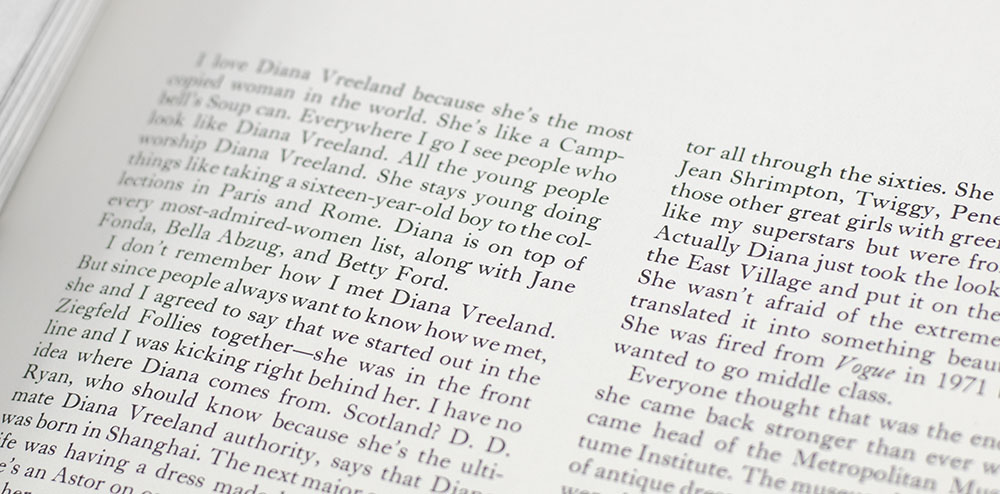 I love Diana Vreeland because she's the most
copied woman in the world. She's like a Camp-
bell's Soup can. Everywhere I go I see people who
look like Diana Vreeland. All the young people
worship Diana Vreeland. She stays young doing
things like taking a sixteen-year-old boy to the col-
lections in Paris and Rome. Diana is on top of
every most-admired-women list, along with Jane
Fonda, Bella Abzug, and Betty Ford.
I don't remember how I met Diana Vreeland.
But since people always want to know how we met,
she and I agreed to say that we started out in the
Ziegfeld Follies together—she was in the front
line and I was kicking right behind her. I have no
idea where Diana comes from. Scotland? D. D.
Ryan, who should know because she's the ulti-
mate Diana Vreeland authority, says that Diana
was born in Shanghai. The next major
ife was having a dress made
e's an Astor on
her
tor all through the sixties. She
Jean Shrimpton, Twiggy, Pene
those other great girls with green
like my superstars but were fro
Actually Diana just took the look
the East Village and put it on the
She wasn't afraid of the extreme
translated it into something beau
She was fired from Vogue in 1971
wanted to go middle class.
Everyone thought that was the en
she came back stronger than ever w
came head of the Metropolitan Mus
tume Institute. The museu
of antique dres
were